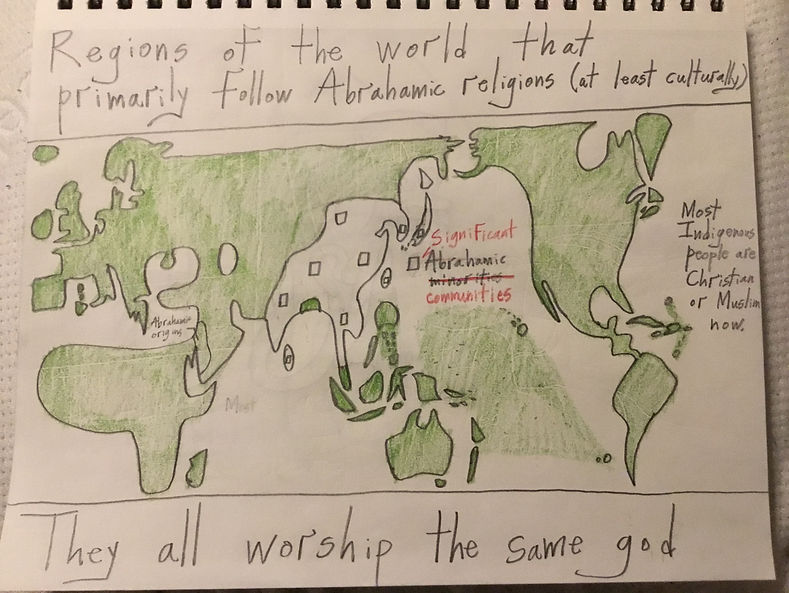 Regions of the world that
primarily follow Abrahamic religions (at least culturally)
Significant
Abrahamic
minorities
communities
Most
Indigenous
people are
Christian
or Muslim
now.
Abrahamic
origins
Most
They all worship the same god